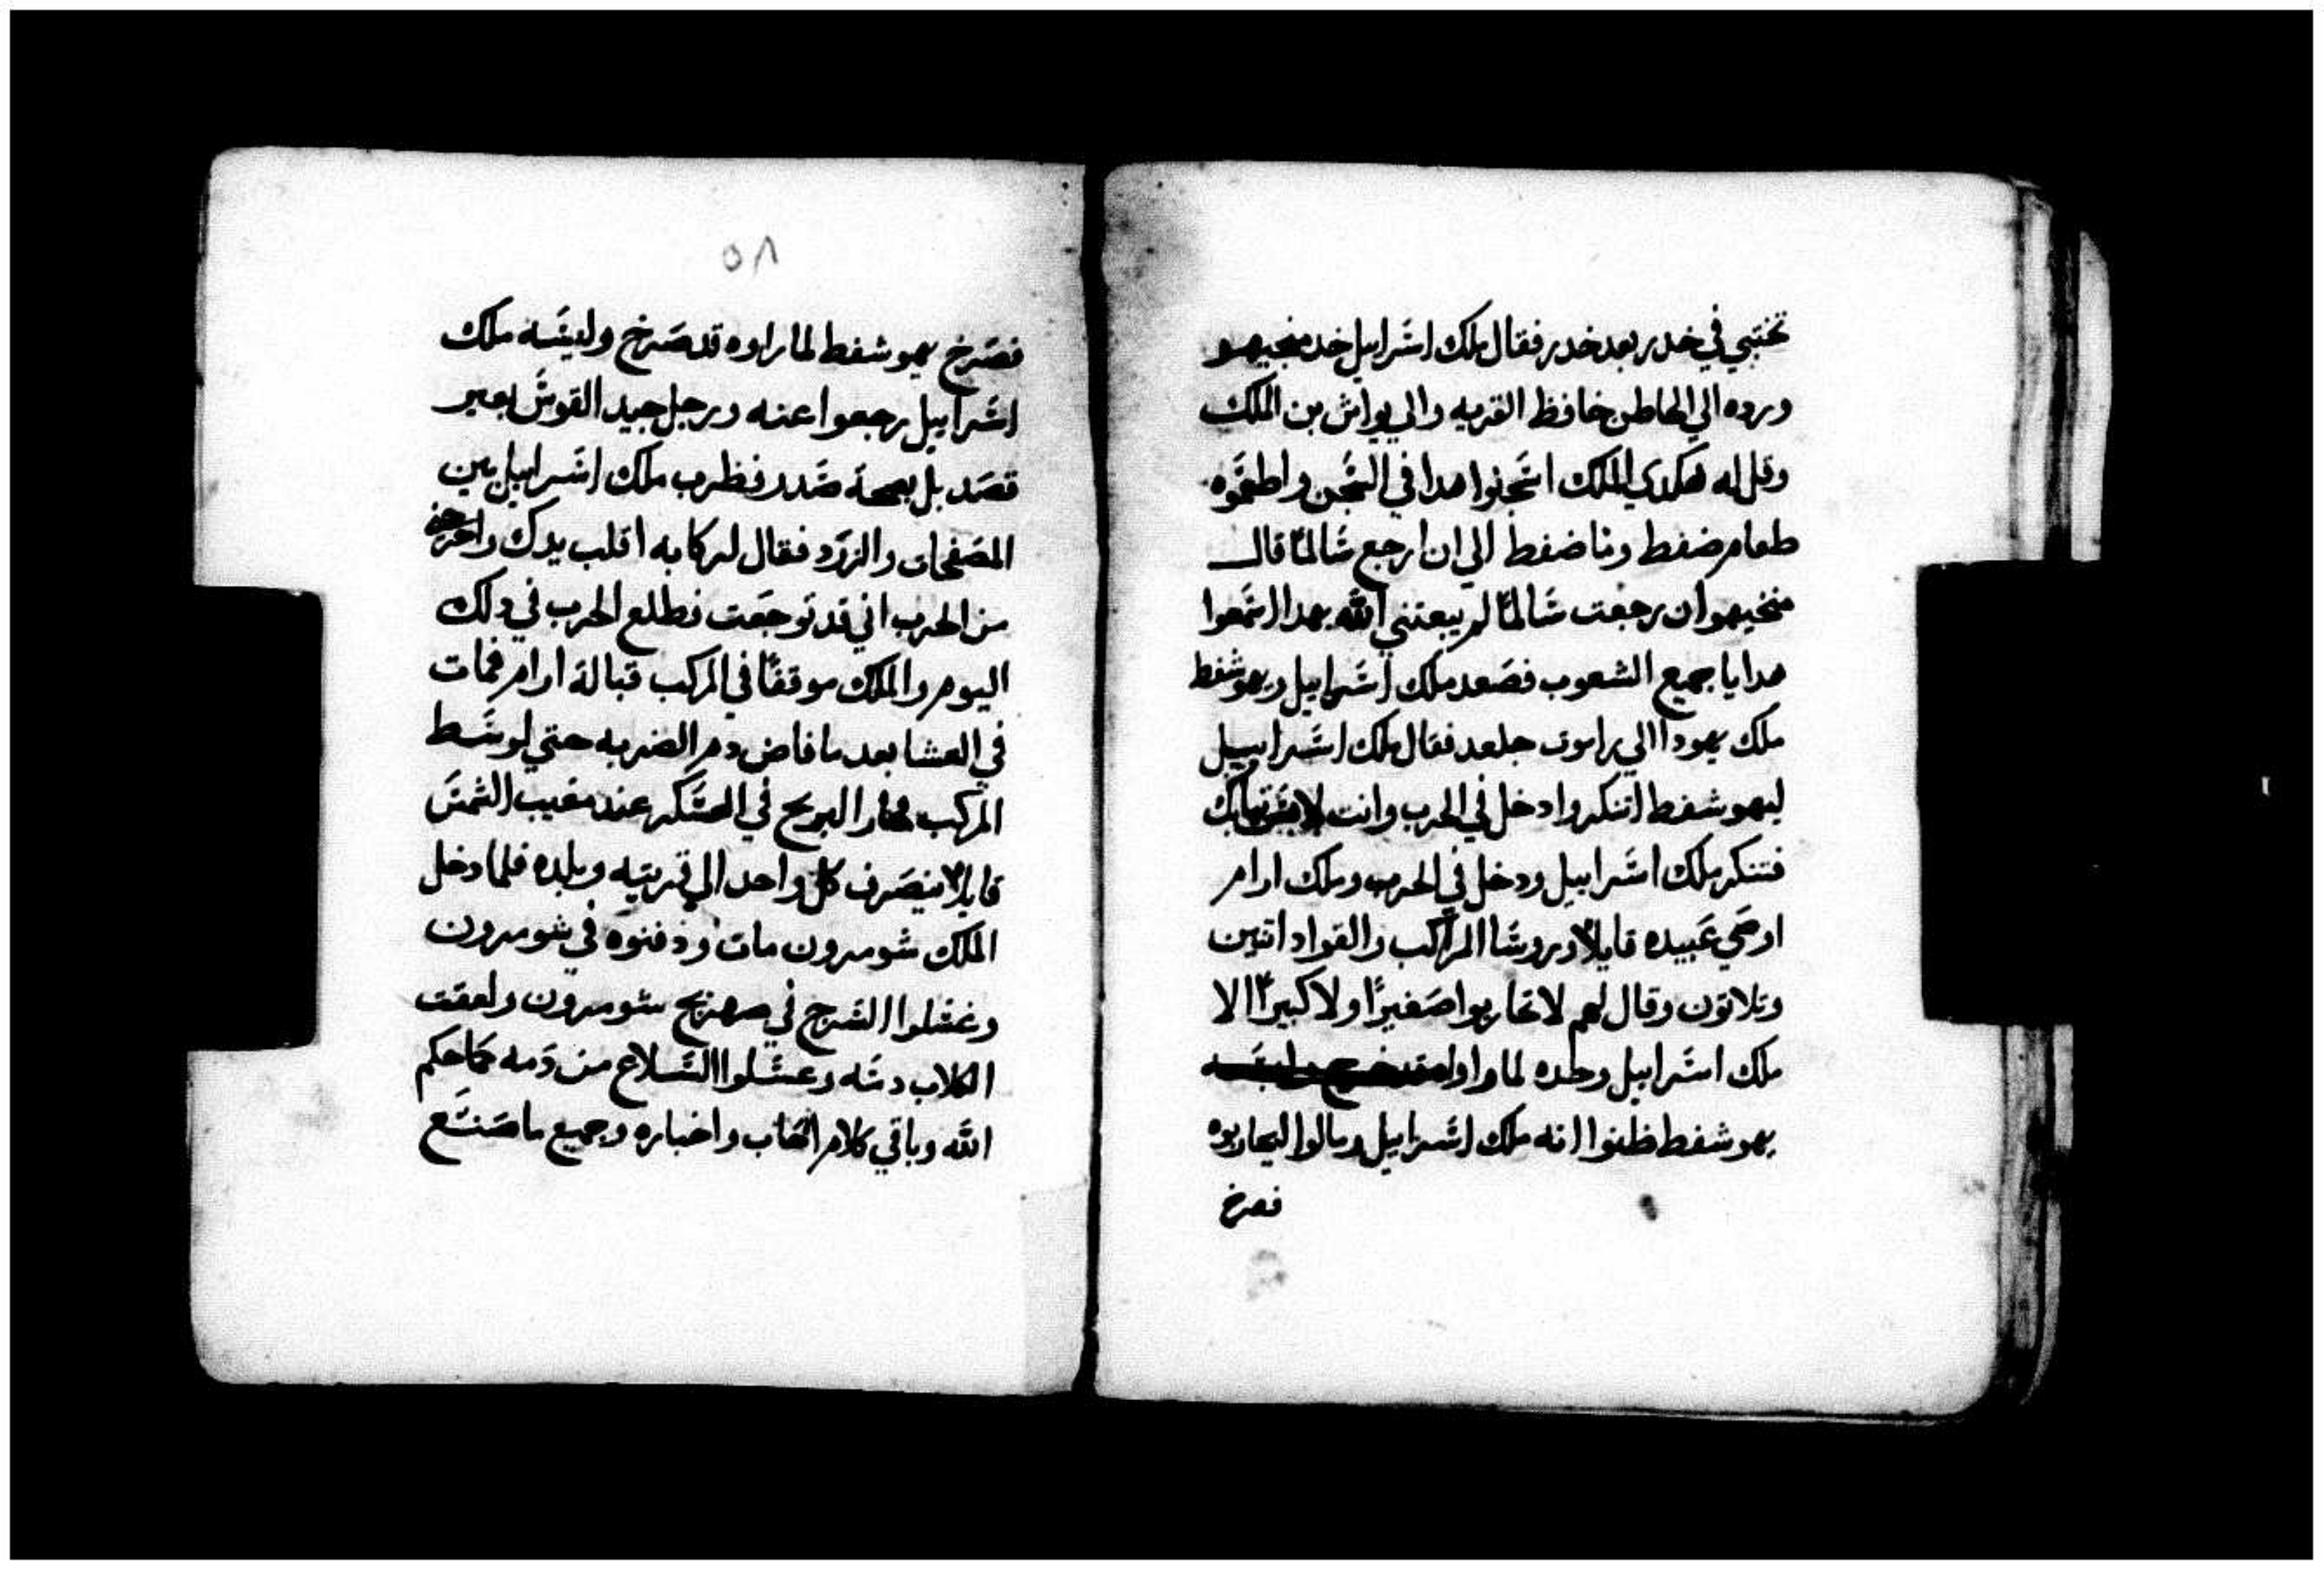 تختبي في خدر بعد خدر فقال ملك اسرايل خد منخيهو
ورده الي الحاطن حافظ القريه والي يواش بن الملك
وقل له هكدي الملك اسجنوا هدا في السجن واطعموه
طعام ضفط وما ضفط الي ان ارجع سالمًا قال
منخيهو ان رجعت سالمًا لم يبعتني الله بهدا اسمعوا
هدا يا جميع الشعوب فصعد ملك اسراييل ويهوشفط
ملك يهودا الي راموت جلعد فقال ملك اسراييل
ليهوشفط اتنكر وادخل في الحرب وانت تيابك
فتنكر ملك اسراييل ودخل في الحرب وملك ارام
اوصي عبيده قايلًا وروسا المراكب والقواد اتنين
وتلاتون وقال لهم لا تحاربوا صغيرًا ولا كبيرًا الا
ملك اسراييل وحده لما راوا
يهوشفط ظنوا انه ملك اسراييل ومالوا ليحاربوه
فصرخ
٥٨
فصرخ يهوشفط لما راوه قد صرخ وليسه ملك
اسراييل رجعوا عنه ورجل جيد القوس بغير
قصد بل بصحة ضرب ملك اسراييل بين
المصفحات والزرد فقال لركابه اقلب يدك واخرجني
من الحرب اني قد توجعت فطلع الحرب في دلك
اليوم والملك موقفًا في المركب قبالة ارام فمات
في العشا بعد ما فاض دم الضربه حتي لوسط
المركب في العسكر عند مغيب الشمس
قايلًا ينصرف كل واحد الي قريته وبلده فلما دخل
الملك شومرون مات ودفنوه في شومرون
وغسلوا السرج في صهريج شومرون ولعقت
الكلاب دمه وغسلوا السلاح من دمه كما حكم
الله وباقي كلام احاب واخباره وجميع ما صنع